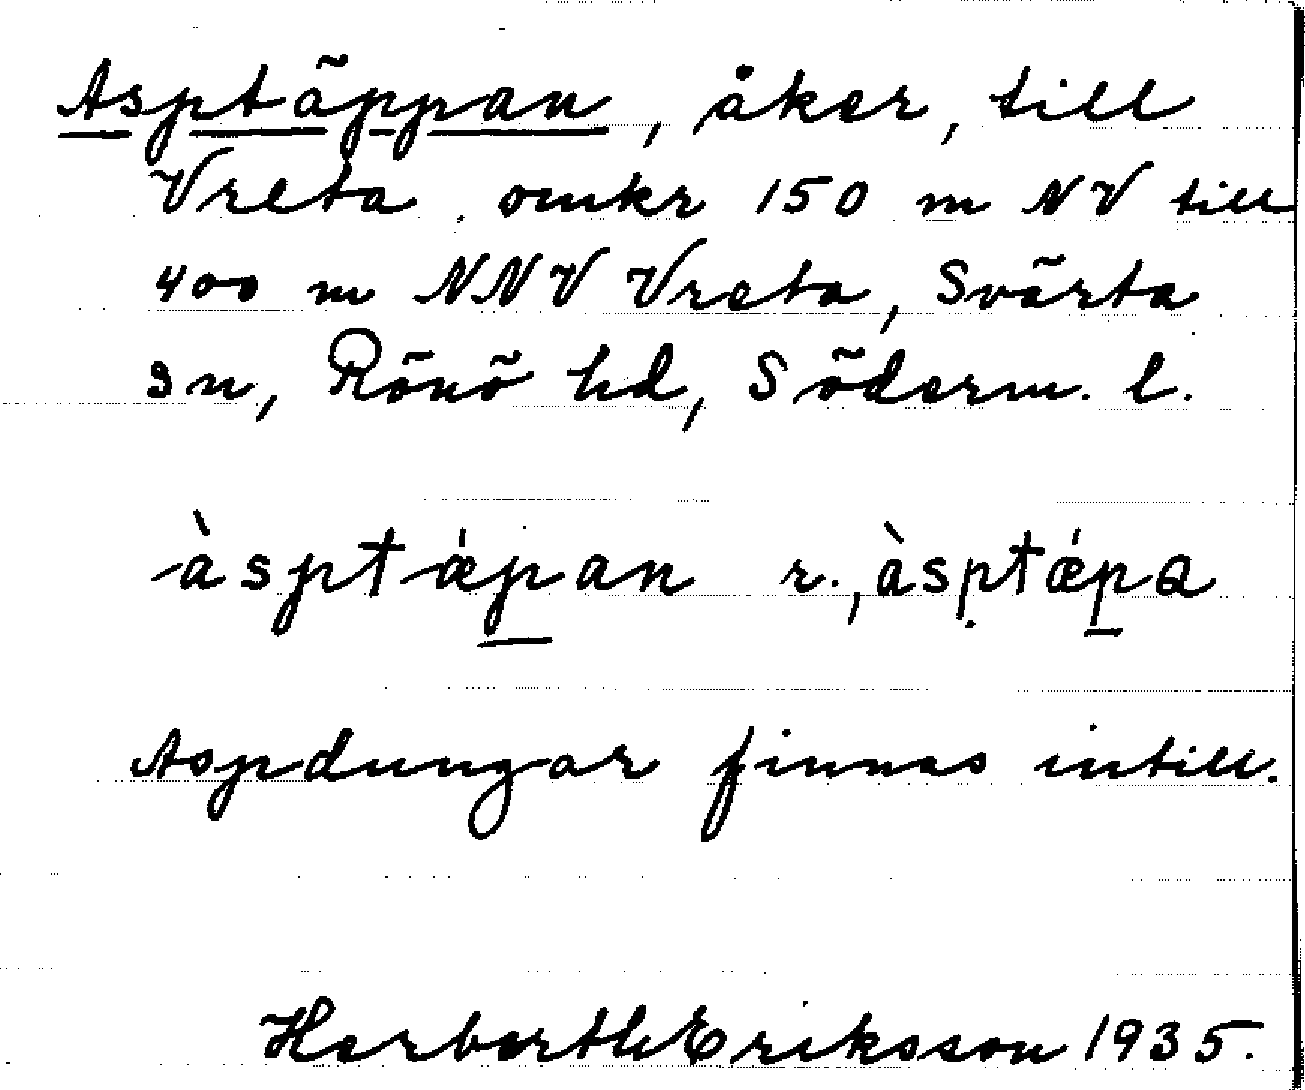 Asptäppan, åker, till
Vreta omkr 150 m NV till
400 m NNV Vreta, Svärta
sn, Rönö hd, Söderm. l.
àsptǽpan r., àsptǽpa
Aspdungar finnas intill.
Herberth Eriksson 1935.